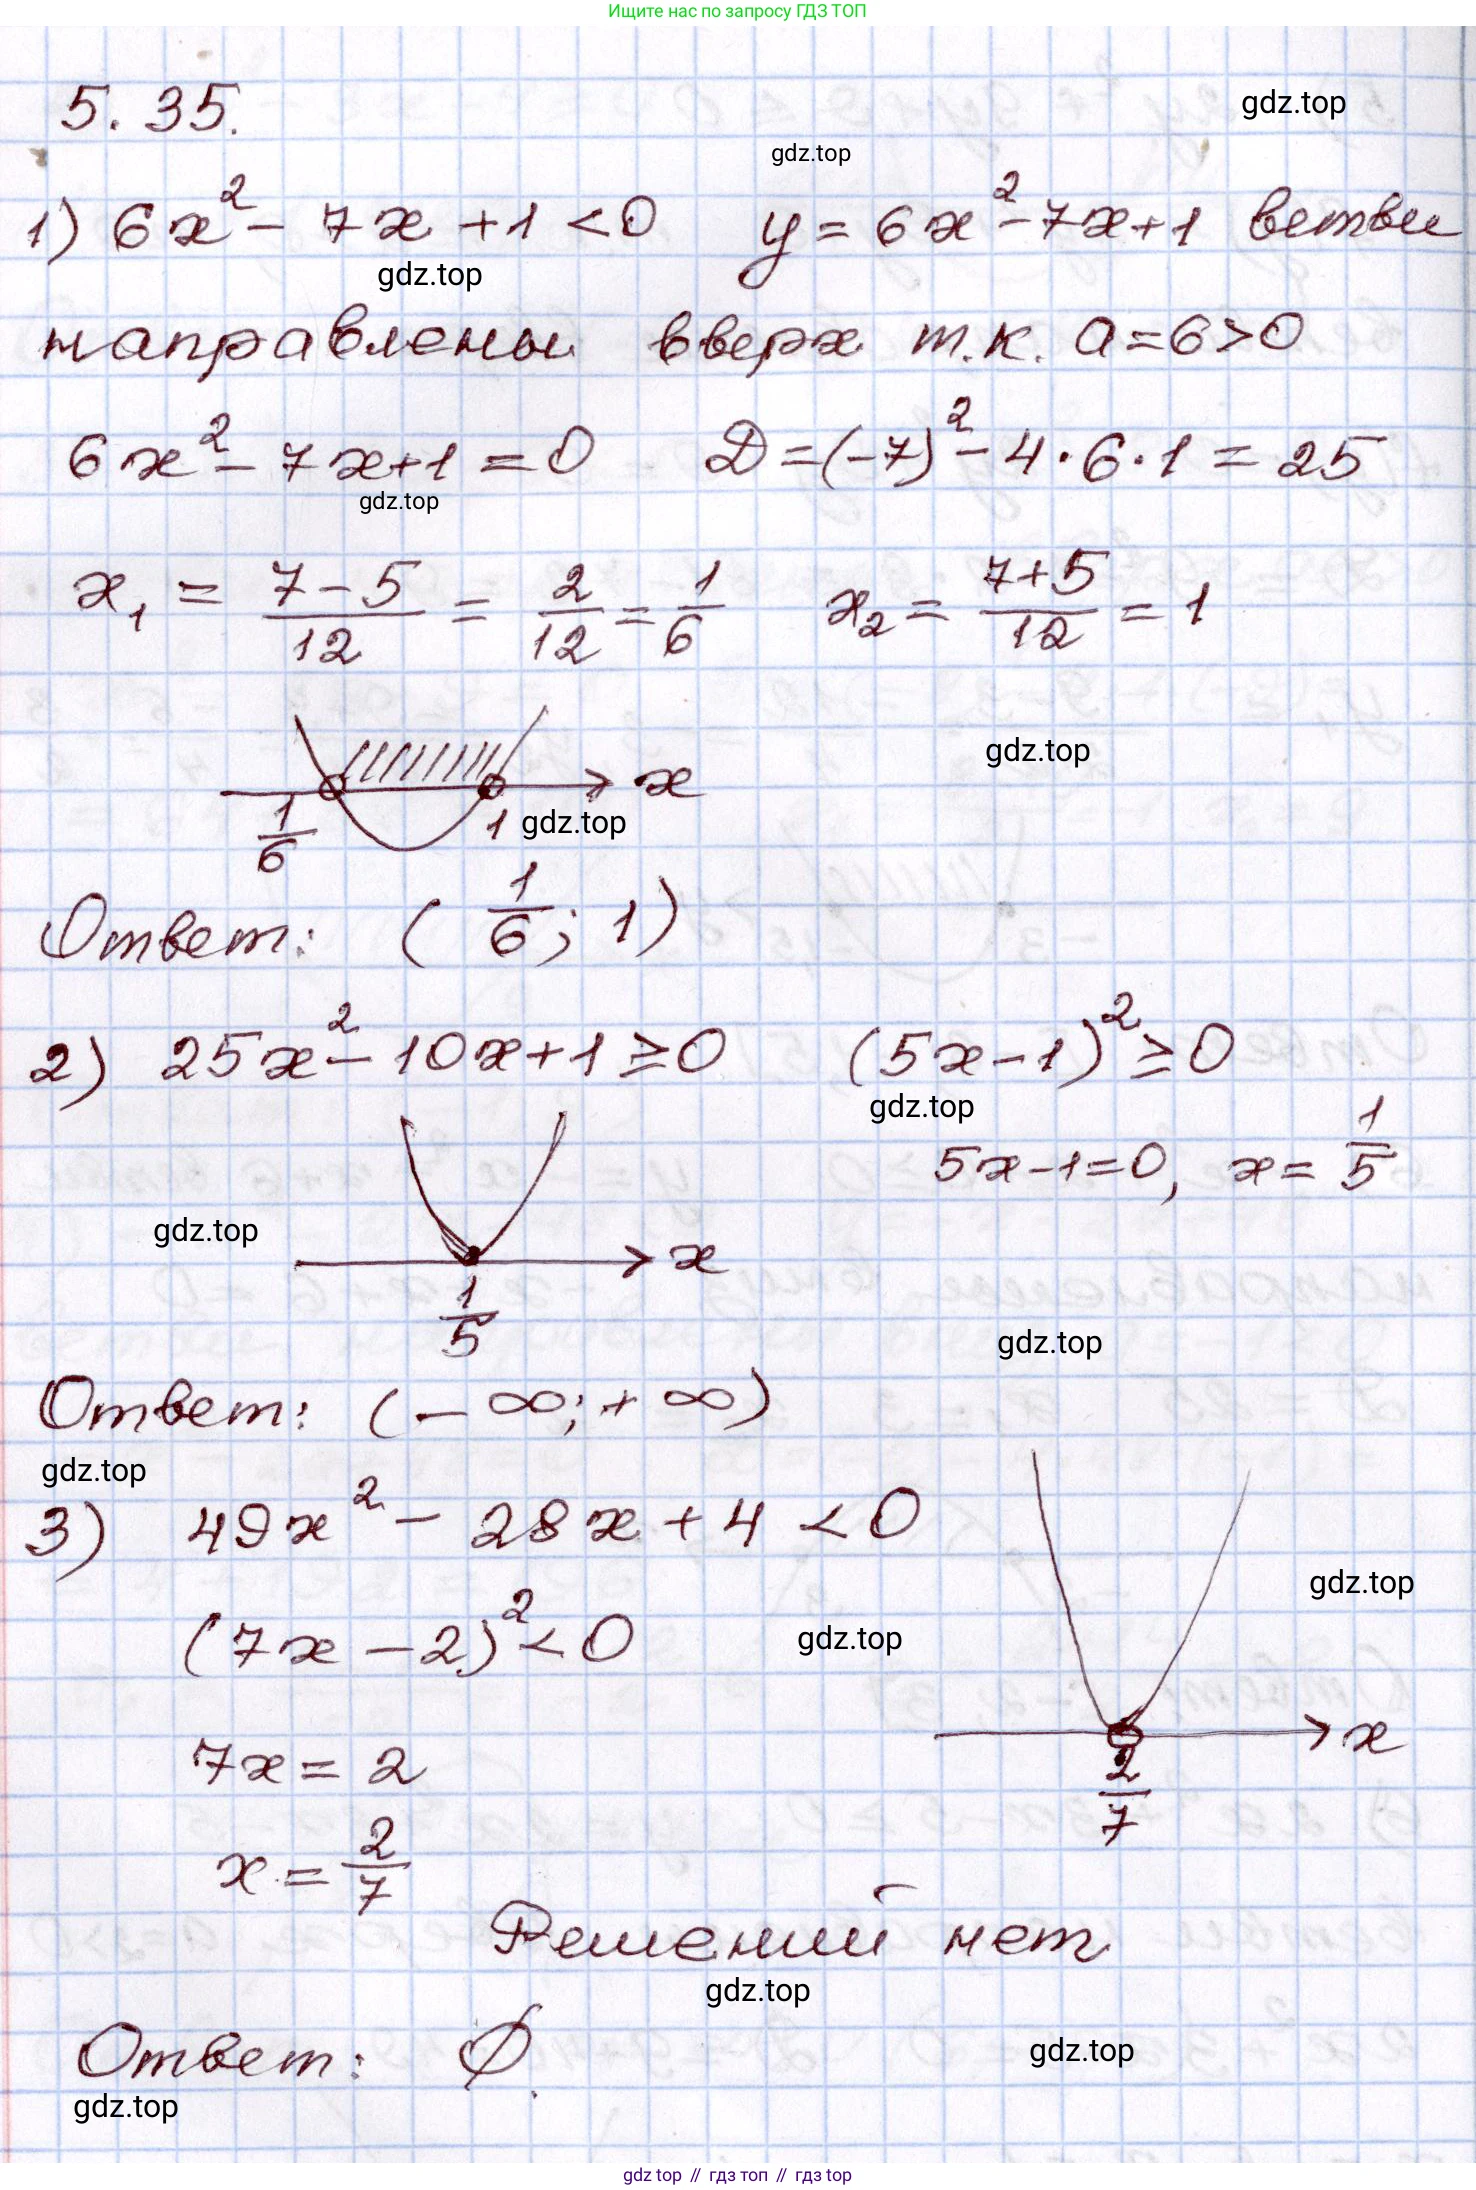 Ищите нас по запросу ГДЗ ТОП
5.35.
gdz.top
gdz.top
1) 6x² - 7x + 1 < 0 y = 6x² - 7x + 1 ветви
gdz.top
направлены вверх т.к. a = 6 > 0
6x² - 7x + 1 = 0 D = (-7)² - 4 · 6 · 1 = 25
gdz.top
x₁ = (7 - 5)/12 = 2/12 = 1/6 x₂ = (7 + 5)/12 = 1
gdz.top
x
1/6 1 gdz.top
Ответ: (1/6; 1)
2) 25x² - 10x + 1 ≥ 0 (5x - 1)² ≥ 0
gdz.top
5x - 1 = 0, x = 1/5
gdz.top
x
1/5
gdz.top
Ответ: (-∞; +∞)
gdz.top
3) 49x² - 28x + 4 < 0
gdz.top
(7x - 2)² < 0
gdz.top
x
7x = 2
2/7
x = 2/7
Решений нет
gdz.top
Ответ: ∅.
gdz.top
gdz.top
gdz top // гдз топ // гдз top